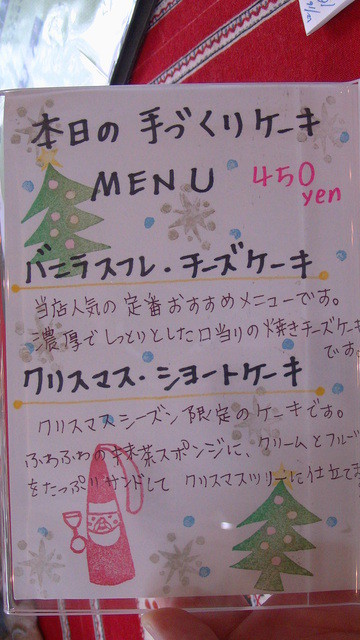 本日の 手づくりケーキ
MENU
450
yen
バニラスフレ・チーズケーキ
当店人気の定番おすすめメニューです。
濃厚でしっとりとした口当りの焼きチーズケーキ
です
クリスマス・ショートケーキ
クリスマスシーズン限定のケーキです。
ふわふわの抹茶スポンジに、クリームとフルー
をたっぷりサンドして クリスマスツリーに仕立て